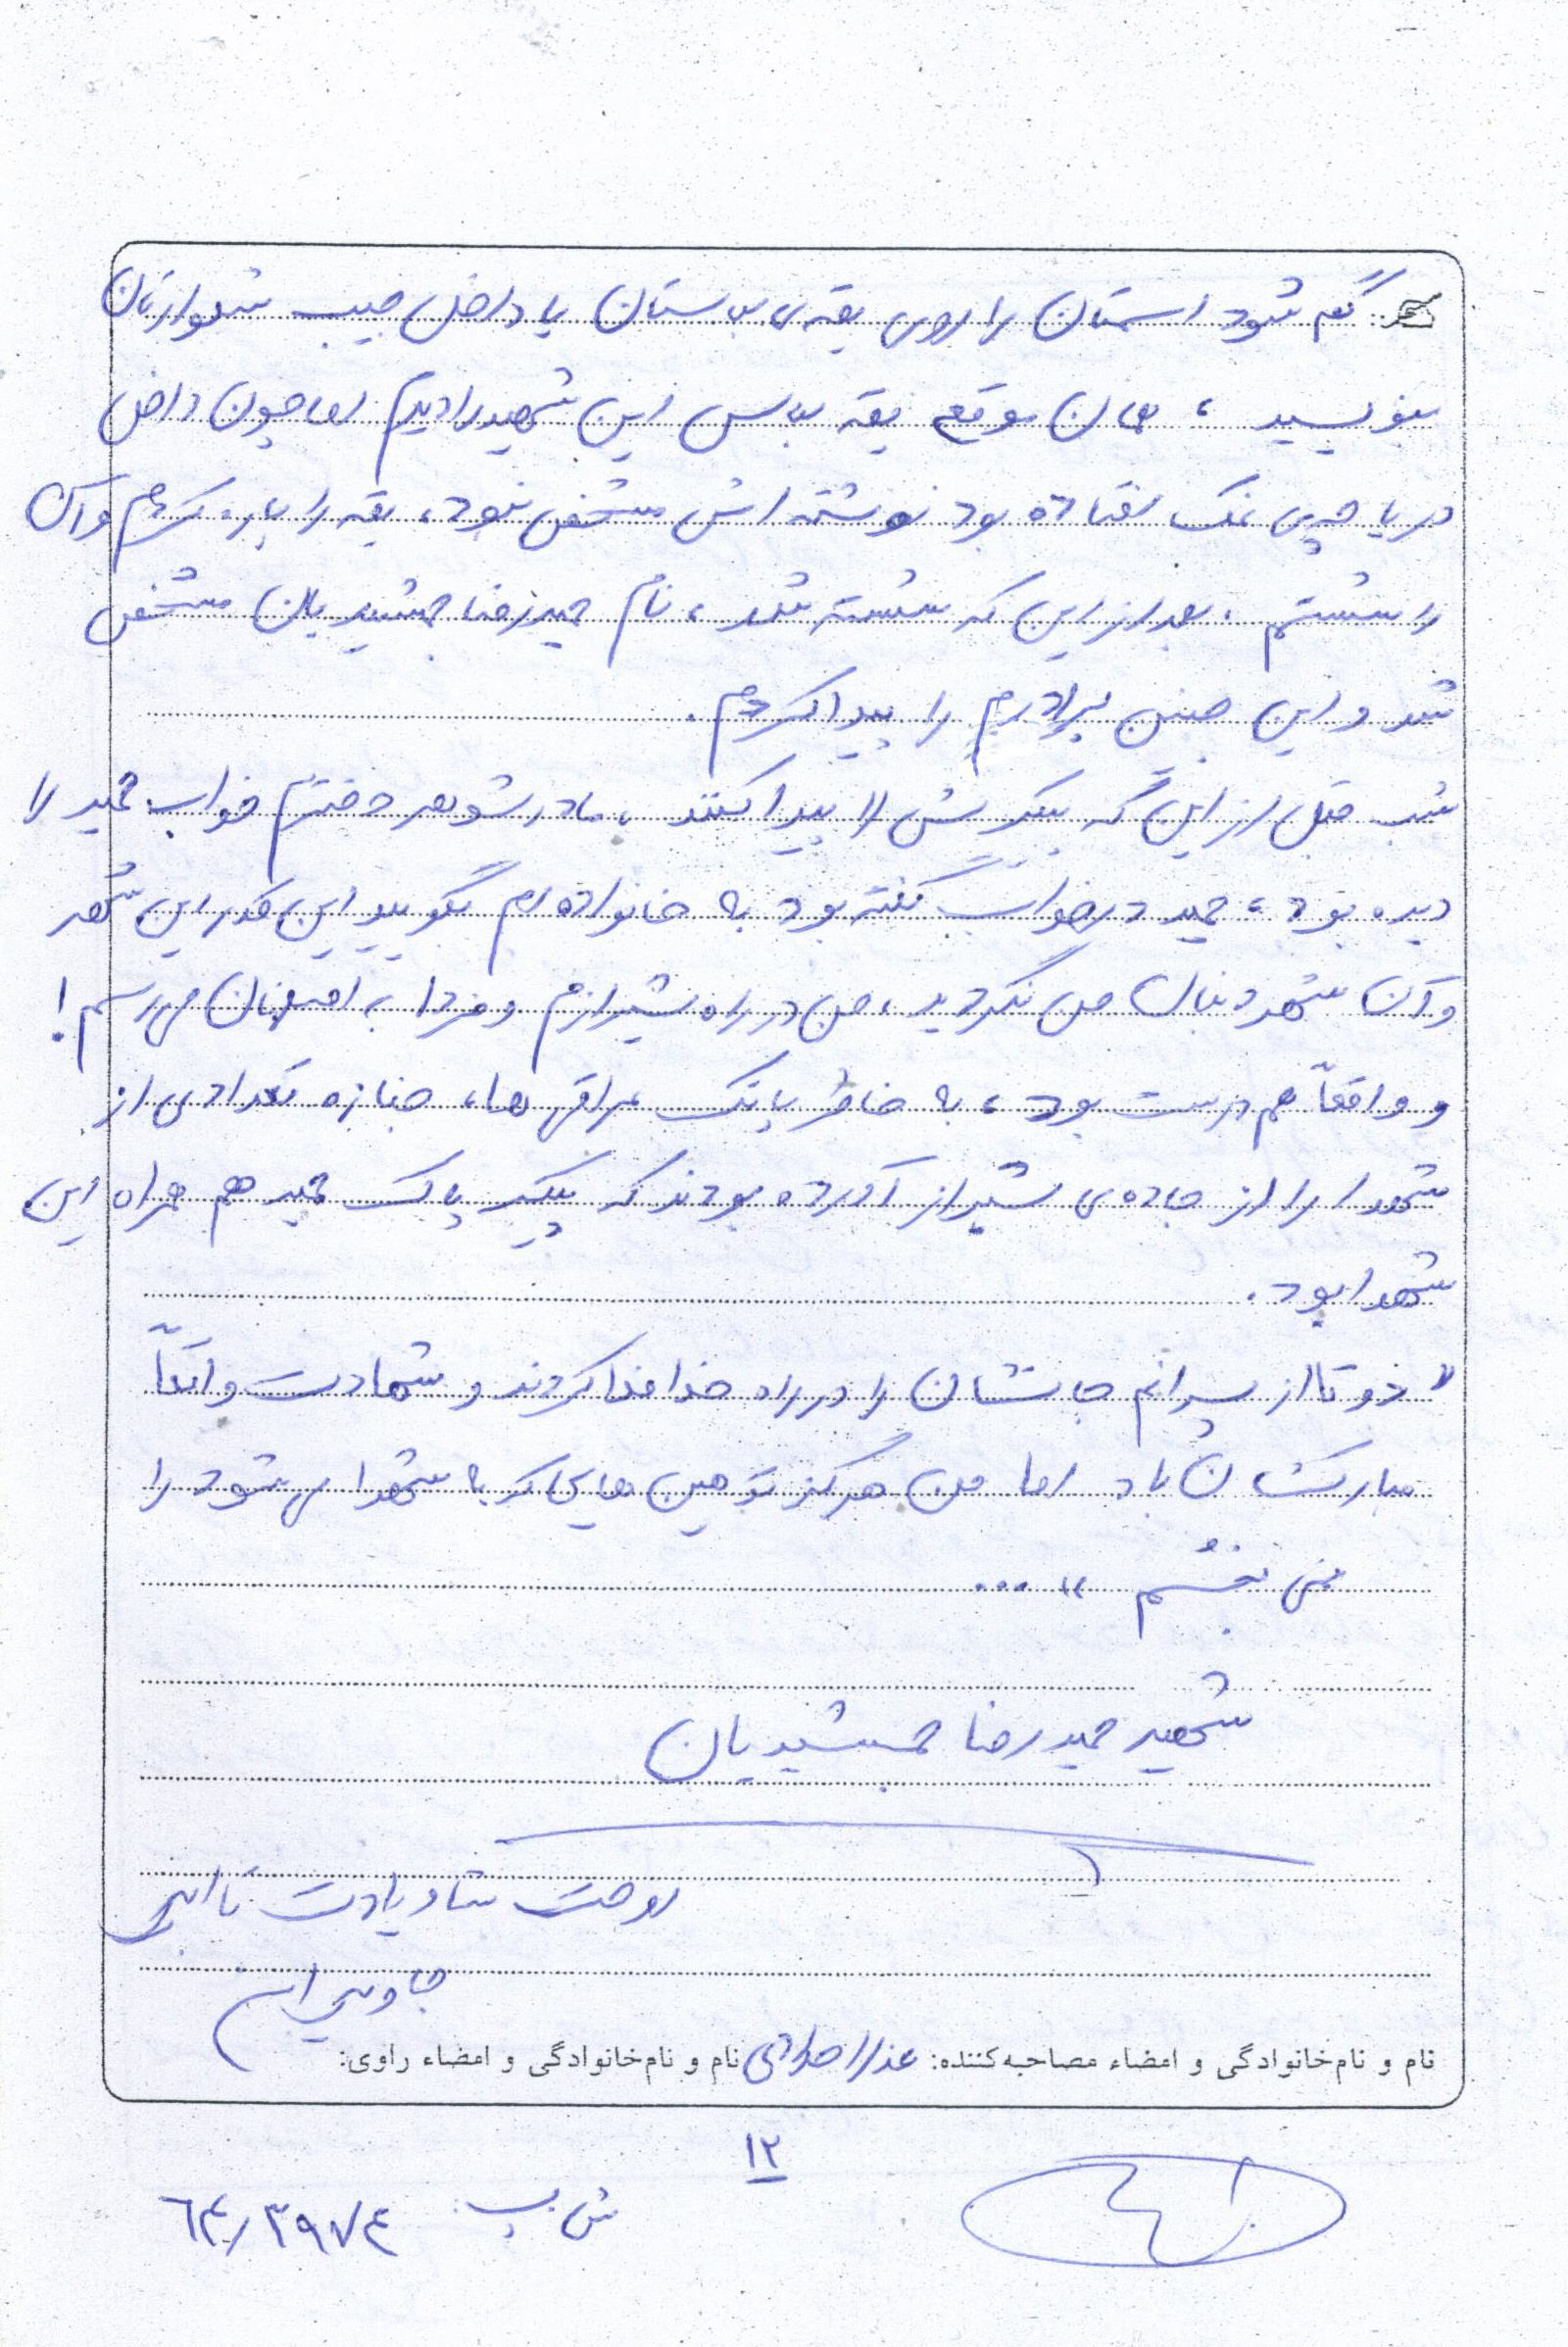 گم شود اسمتان را روی یقه‌ی لباستان یا داخل جیب شلوارتان
بنویسید ، همان موقع یقه لباس این شهید را دیدم اما چون داخل
دریاچه‌ی نمک افتاده بود نوشته اش مشخص نبود، یقه را پاره کردم و آن
را شستم . بعد از این که شسته شد ، نام حمیدرضا جمشیدیان مشخص
شد و این چنین برادرم را پیدا کردم .
شب قبل از این که پیکرش را پیدا کنند ، مادرشوهر دخترم خواب حمید را
دیده بود ، حمید در خواب گفته بود به خانواده ام بگویید این قدر این شهر
و آن شهر دنبال من نگردید ، من در راه شیرازم و فردا به اصفهان می رسم !
و واقعاً هم درست بود ، به خاطر پاتک عراقی ها ، جنازه تعدادی از
شهدا را از جاده‌ی شیراز آورده بودند که پیکر پاک حمید هم همراه این
شهدا بود .
" دو تا از پسرانم جانشان را در راه خدا فدا کردند و شهادت واقعاً
مبارکشان باد اما من هرگز توهین هایی که به شهدا می شود را
نمی بخشم " ...
شهید حمیدرضا جمشیدیان
روحت شاد یادت تا ابد
جاویدان
نام و نام‌خانوادگی و امضاء مصاحبه‌کننده: عذرا نام و نام‌خانوادگی و امضاء راوی:
۱۲
ش . پ ٦۴٫٣٩٧٤